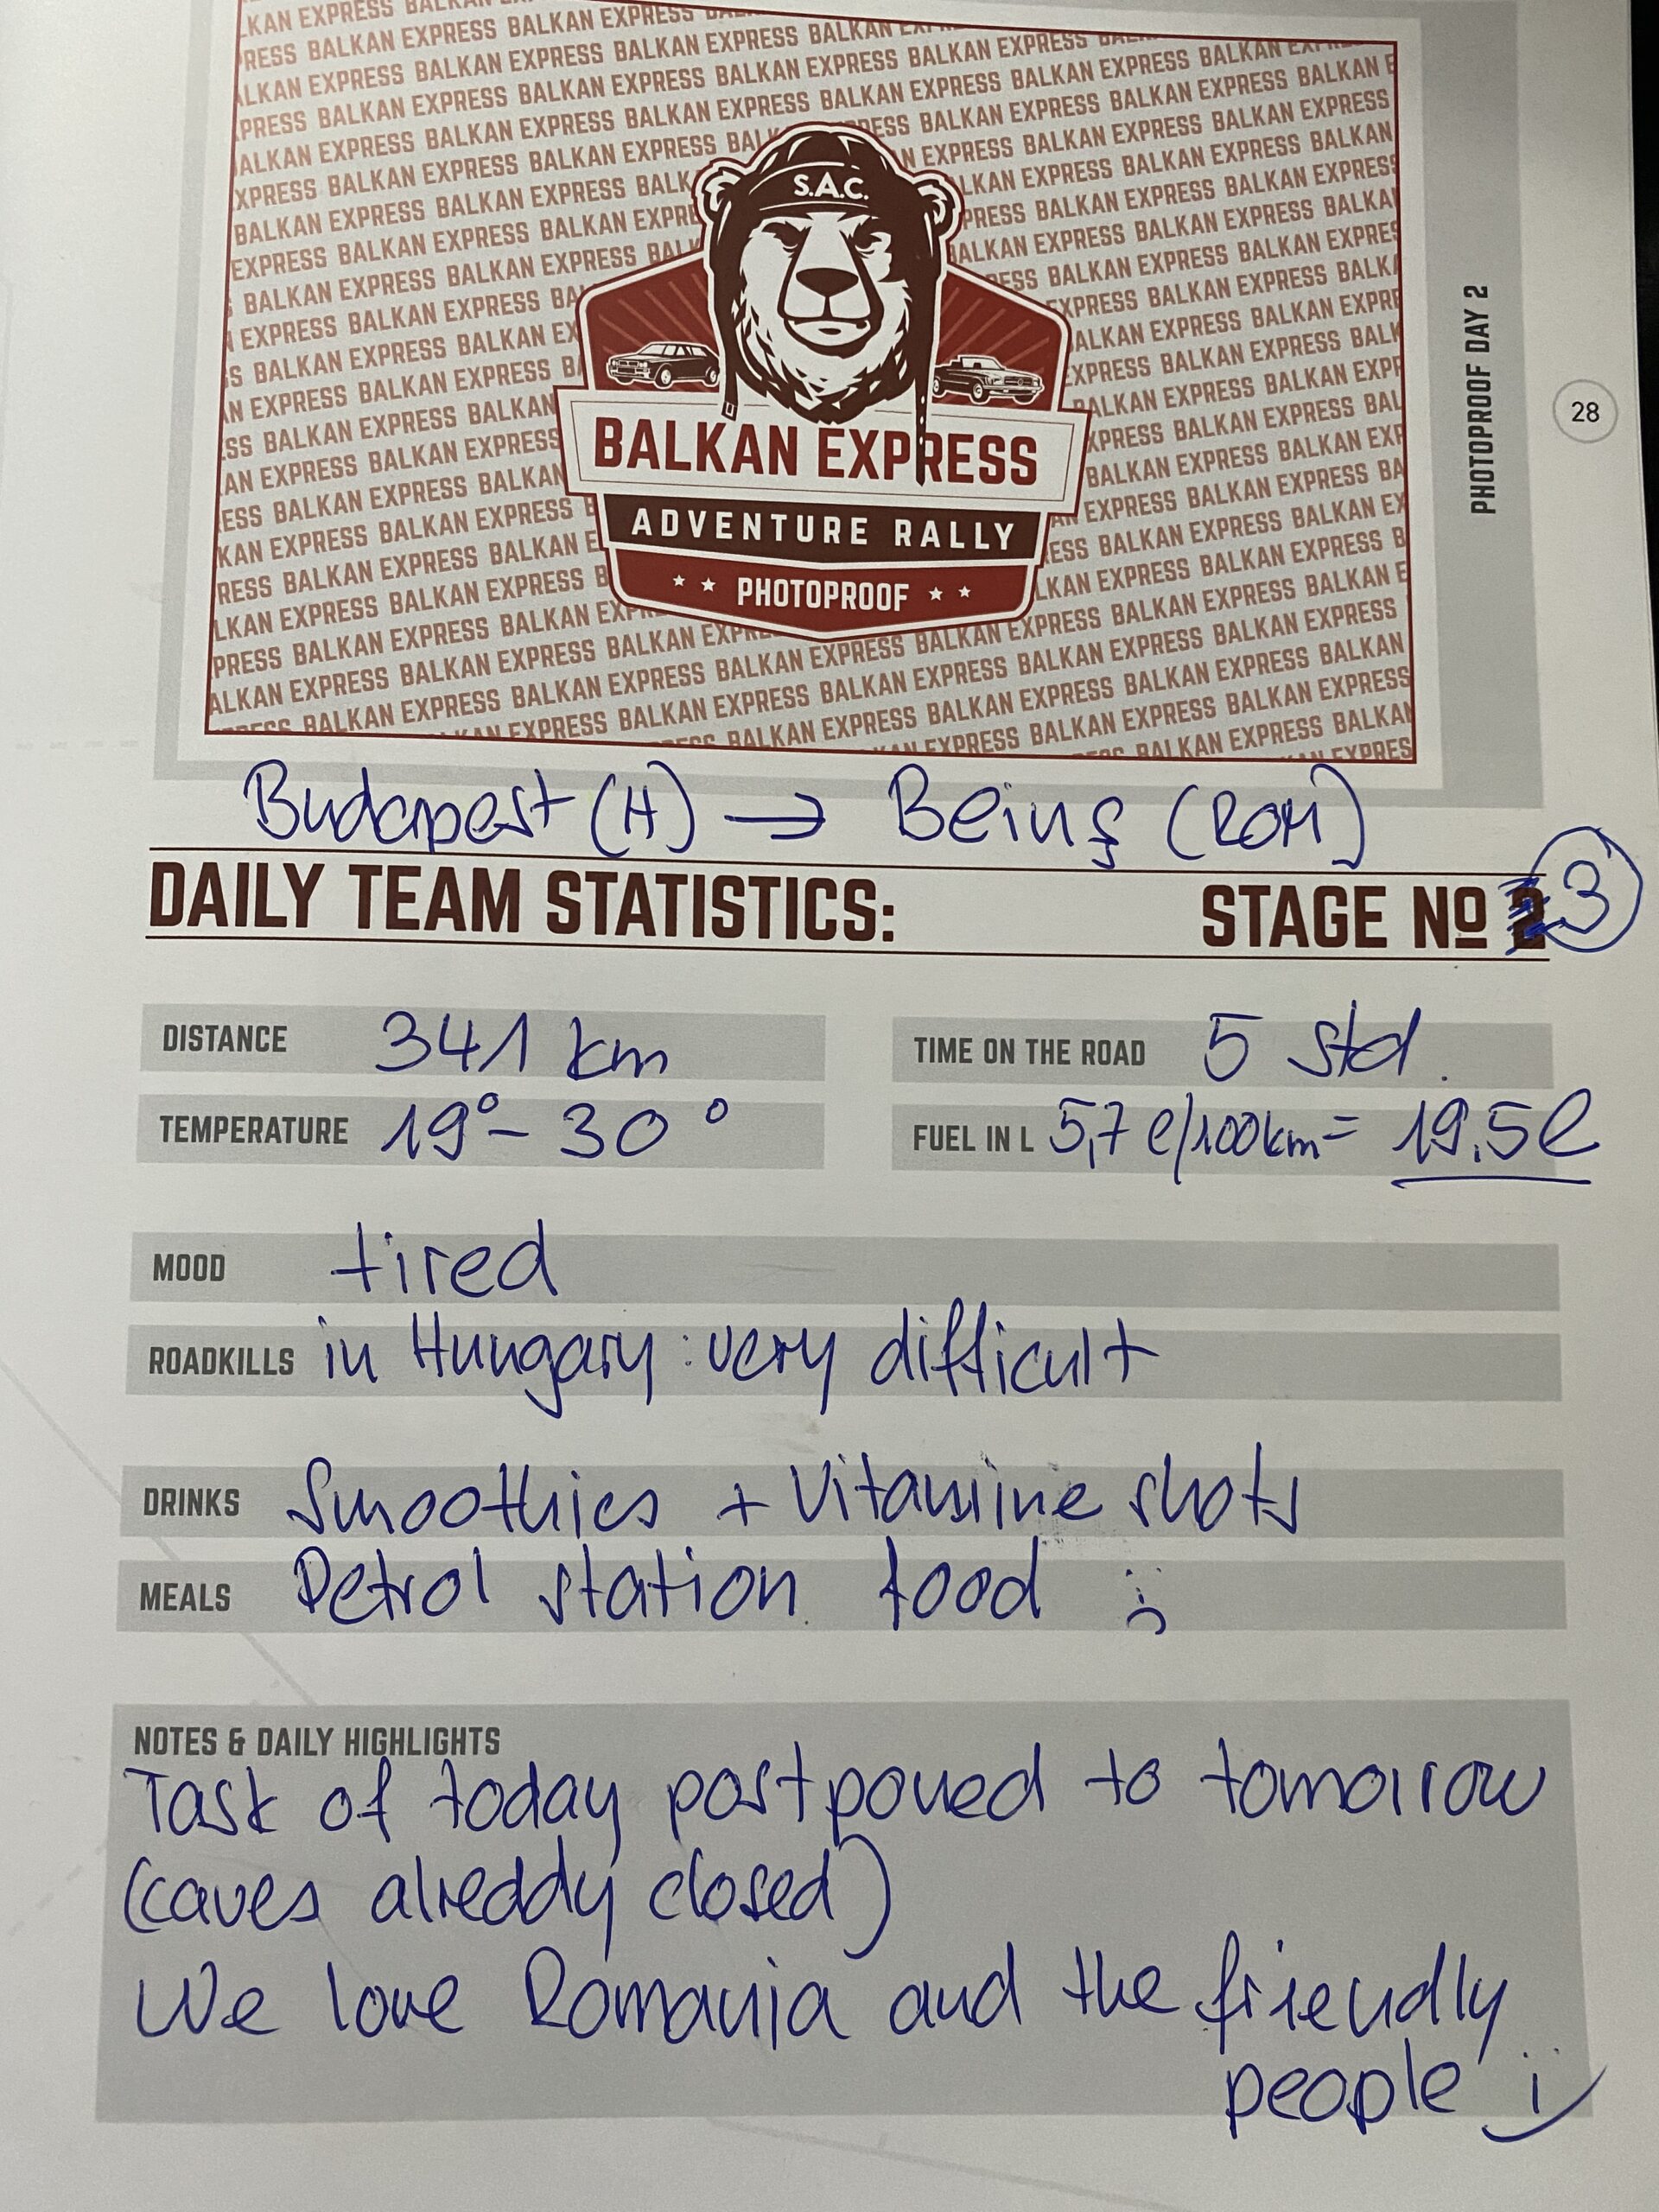 S.A.C.
BALKAN EXPRESS
ADVENTURE RALLY
PHOTOPROOF
PHOTOPROOF DAY 2
28
Budapest (H) → Beinş (ROM)
DAILY TEAM STATISTICS: STAGE Nº 3
DISTANCE 341 km TIME ON THE ROAD 5 Std.
TEMPERATURE 19° - 30° FUEL IN L 5,7 l/100km = 19,5l
MOOD tired
ROADKILLS in Hungary: very difficult
DRINKS Smoothies + Vitamine shots
MEALS Petrol station food :(
NOTES & DAILY HIGHLIGHTS
Task of today postponed to tomorrow
(caves alreddy closed)
We love Romania and the friendly
people :)